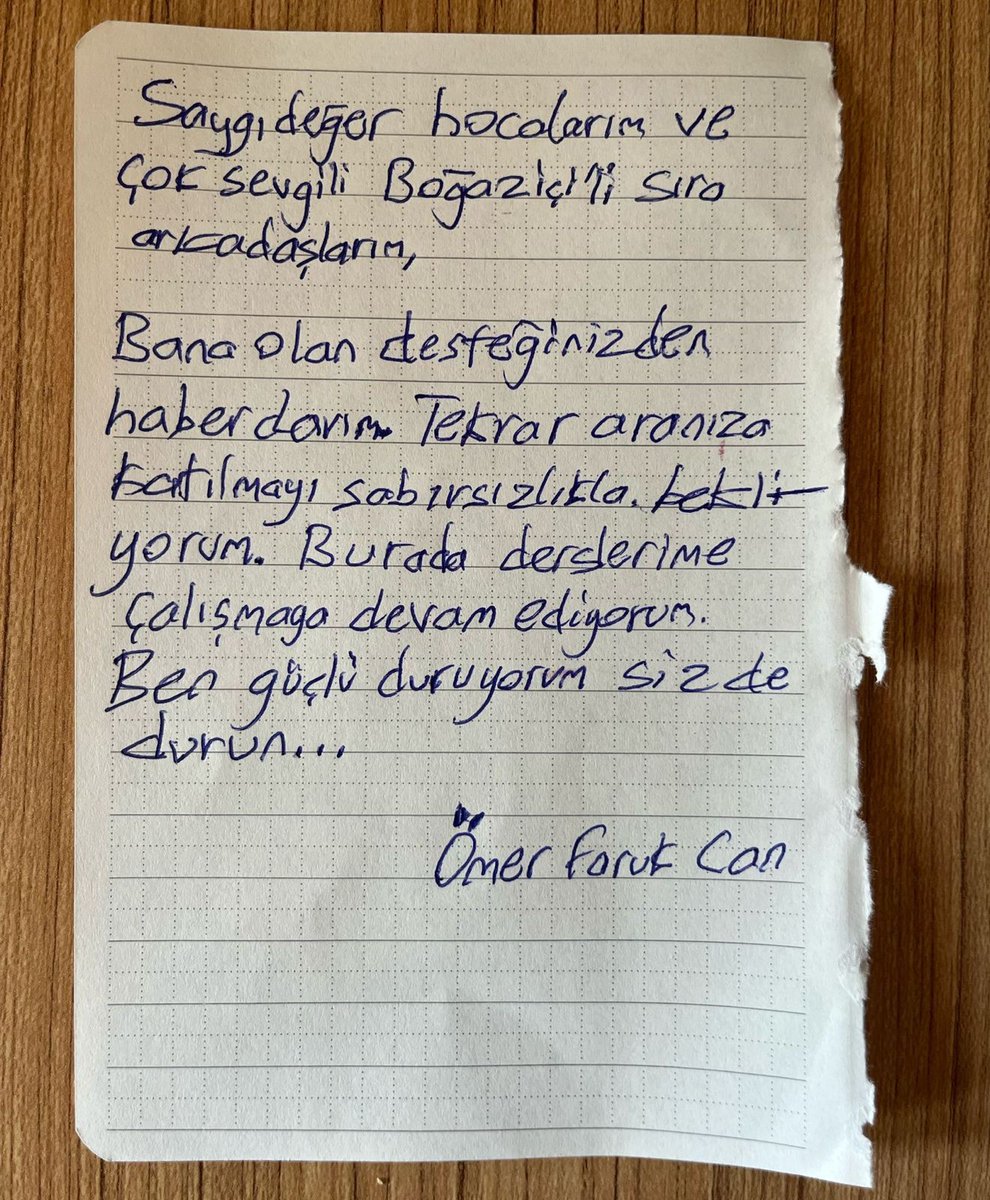 Saygıdeğer hocalarım ve
çok sevgili Boğaziçi'li sıra
arkadaşlarım,
Bana olan desteğinizden
haberdarım. Tekrar aranıza
katılmayı sabırsızlıkla. bekli-
yorum. Burada derslerime
çalışmaga devam ediyorum.
Ben güçlü duruyorum siz de
durun...
Ömer Faruk Can